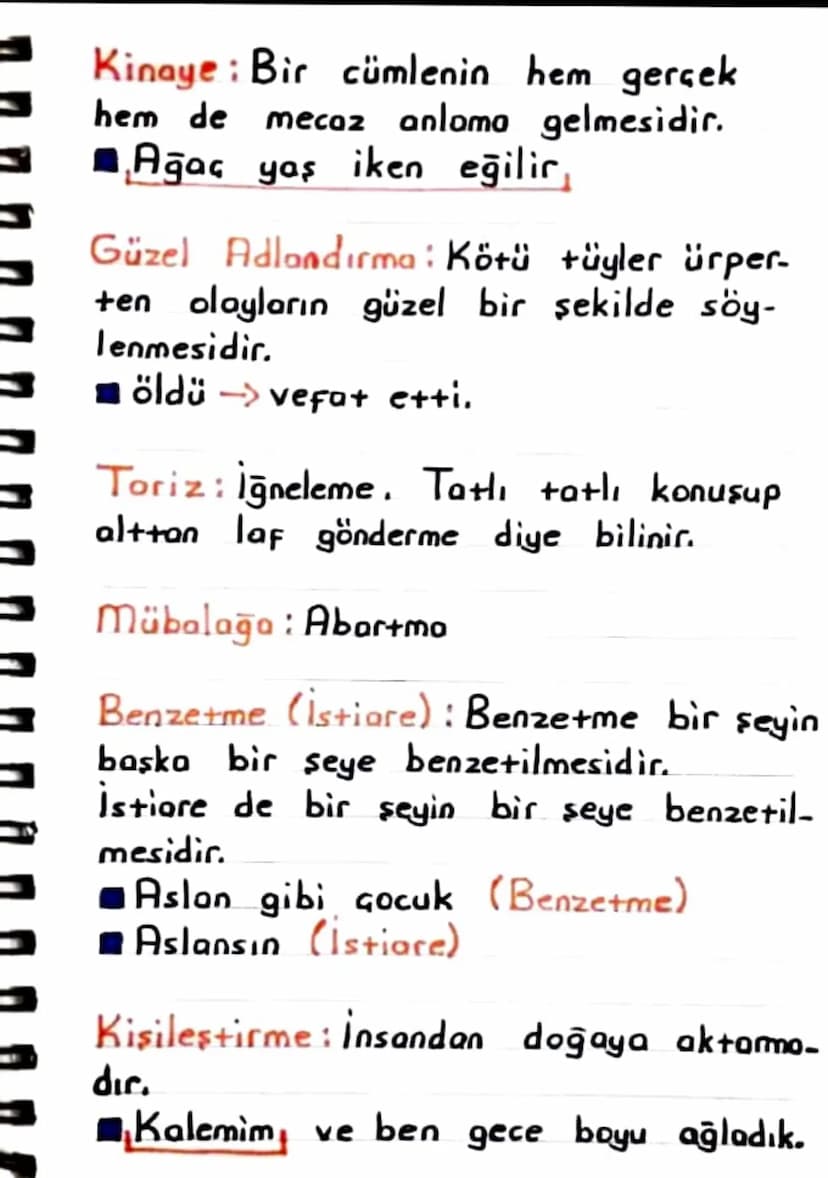 Kinaye: Bir cümlenin hem gerçek
hem de mecaz anlama gelmesidir.
Ağaç yaş iken eğilir
Güzel Adlandırma: Kötü tüyler ürper-
ten olayların güzel bir şekilde söy-
lenmesidir.
öldü → vefat etti.
Tariz: İğneleme. Tatlı tatlı konuşup
alttan laf gönderme diye bilinir.
Mübalağa: Abartma
Benzetme (İstiare): Benzetme bir şeyin
başka bir şeye benzetilmesidir.
İstiare de bir şeyin bir şeye benzetil-
mesidir.
Aslan gibi çocuk (Benzetme)
Aslansın (İstiare)
Kişileştirme: İnsandan doğaya aktarma-
dır.
Kalemim ve ben gece boyu ağladık.